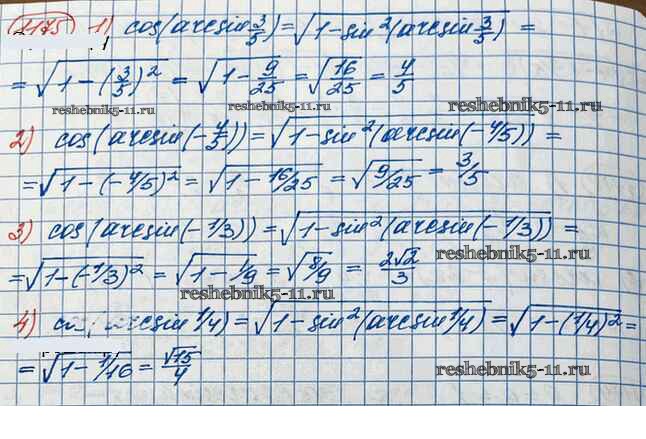 1175 1) cos(arcsin 3/5) = √(1-sin²(arcsin 3/5)) =
= √(1-(3/5)²) = √(1-9/25) = √(16/25) = 4/5
reshebnik5-11.ru
reshebnik5-11.ru
2) cos(arcsin(-4/5)) = √(1-sin²(arcsin(-4/5))) =
= √(1-(-4/5)²) = √(1-16/25) = √(9/25) = 3/5
3) cos(arcsin(-1/3)) = √(1-sin²(arcsin(-1/3))) =
reshebnik5-11.ru
= √(1-(-1/3)²) = √(1-1/9) = √(8/9) = 2√2/3
reshebnik5-11.ru
4) cos(arcsin 1/4) = √(1-sin²(arcsin 1/4)) = √(1-(1/4)²) =
= √(1-1/16) = √15/4
reshebnik5-11.ru